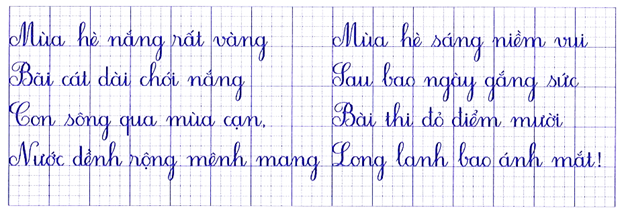 Mùa hè nắng rất vàng
Bãi cát dài chói nắng
Con sông qua mùa cạn,
Nước dềnh rộng mênh mang
Mùa hè sáng niềm vui
Sau bao ngày gắng sức
Bài thi đỏ điểm mười
Long lanh bao ánh mắt!